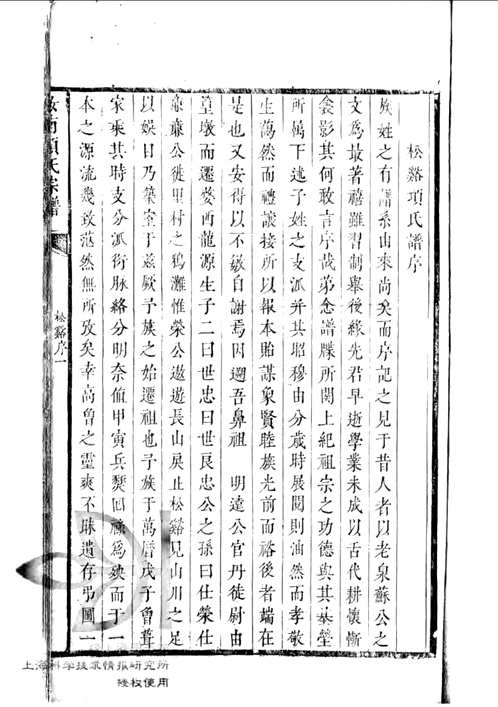 松谿項氏譜序
族姓之有譜系由來尚矣而序記之見于昔人者以老泉蘇公之
文為最著禧雖習制舉後緣先君早逝學業未成以舌代耕懷慚
衾影其何敢言序哉第念譜牒所關上紀祖宗之功德與其墓塋
所厝下逮子姓之支派并其昭穆由分歲時展閱則油然而孝敬
生藹然而禮讓接所以報本貽謀象賢睦族光前而裕後者端在
是也又安得以不敏自謝焉因遡吾鼻祖 明達公官丹徒尉由
皇墩而遷婺西龍源生子二曰世忠曰世良忠公之孫曰仕榮仕
公徙里村之鴉灘惟榮公遨遊長山戾止松谿見山川之足
以娛目乃築室于茲厥予族之始遷祖也予族于萬曆戊子曾葺
家乘其時支分派衍脉絡分明奈值甲寅兵燹回祿為殃而于一
本之源流幾致茫然無所攷矣幸高曾之靈爽不昧遺存弔圖一
汝南項氏宗譜
松谿序一
上海科学技术情报研究所
授权使用